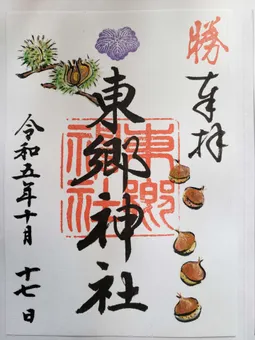 勝
奉拝
東郷神社
東郷神社
令和五年十月十七日